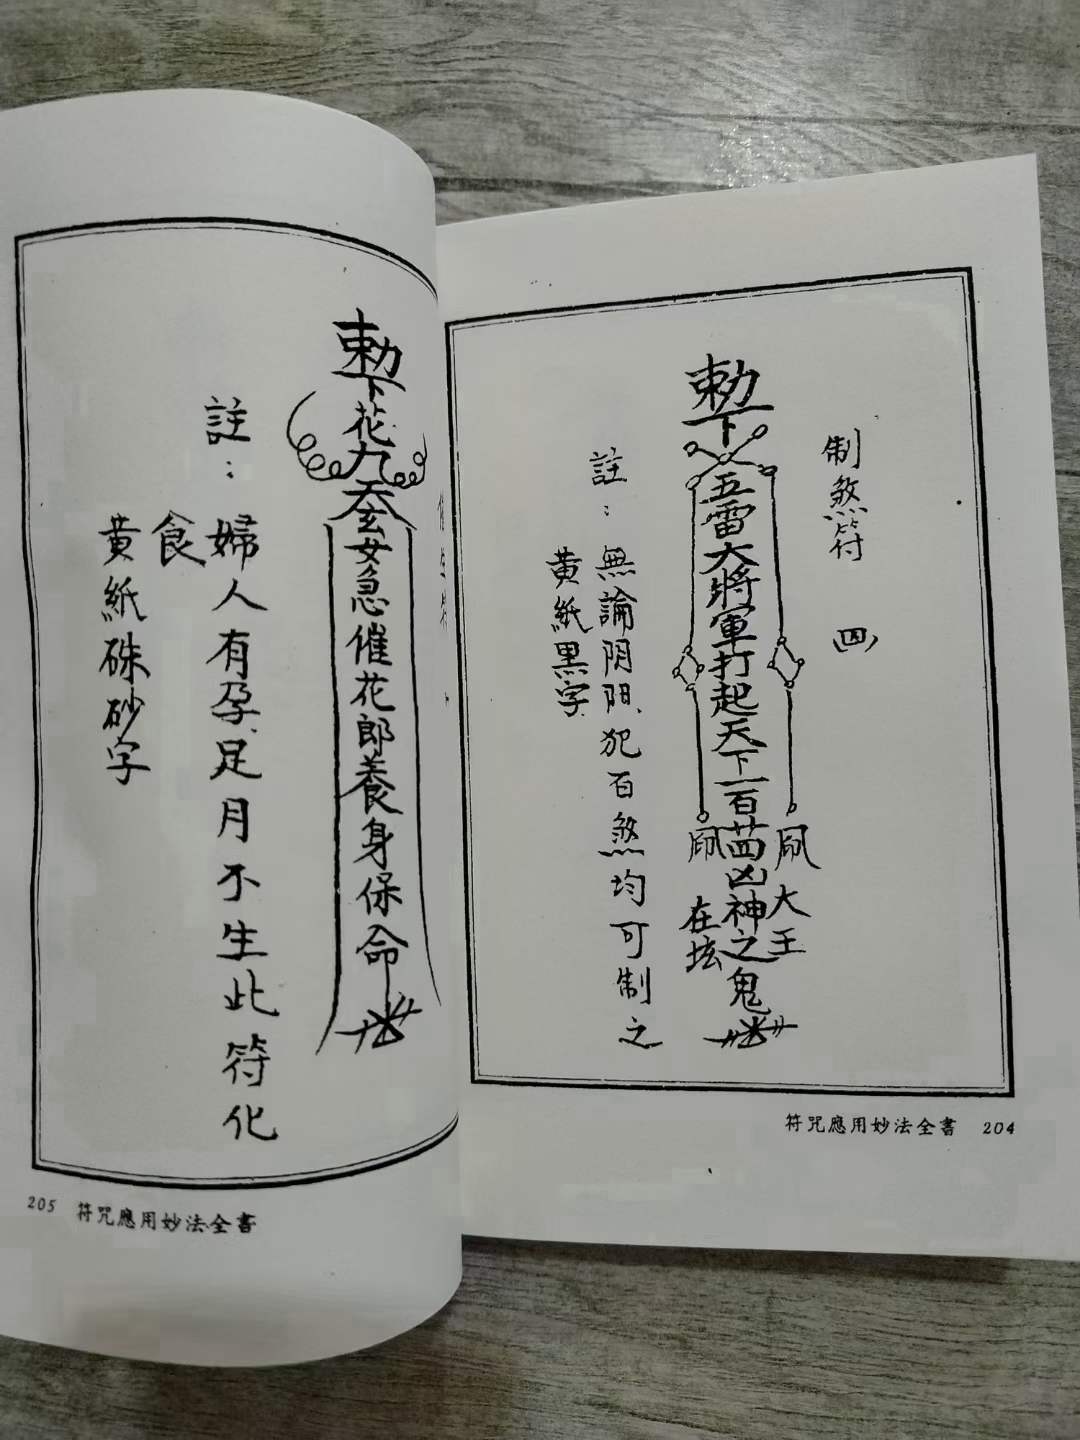 制煞符 四
勅下五雷大將軍打起天下一百廿四凶神之鬼
大王
在坛
註：無論阴阳、犯百煞均可制之
黄紙黒字
符咒應用妙法全書 204
勅下花九天玄女急催花郎養身保命
註：婦人有孕、足月不生此符化
食
黄紙硃砂字
205 符咒應用妙法全書